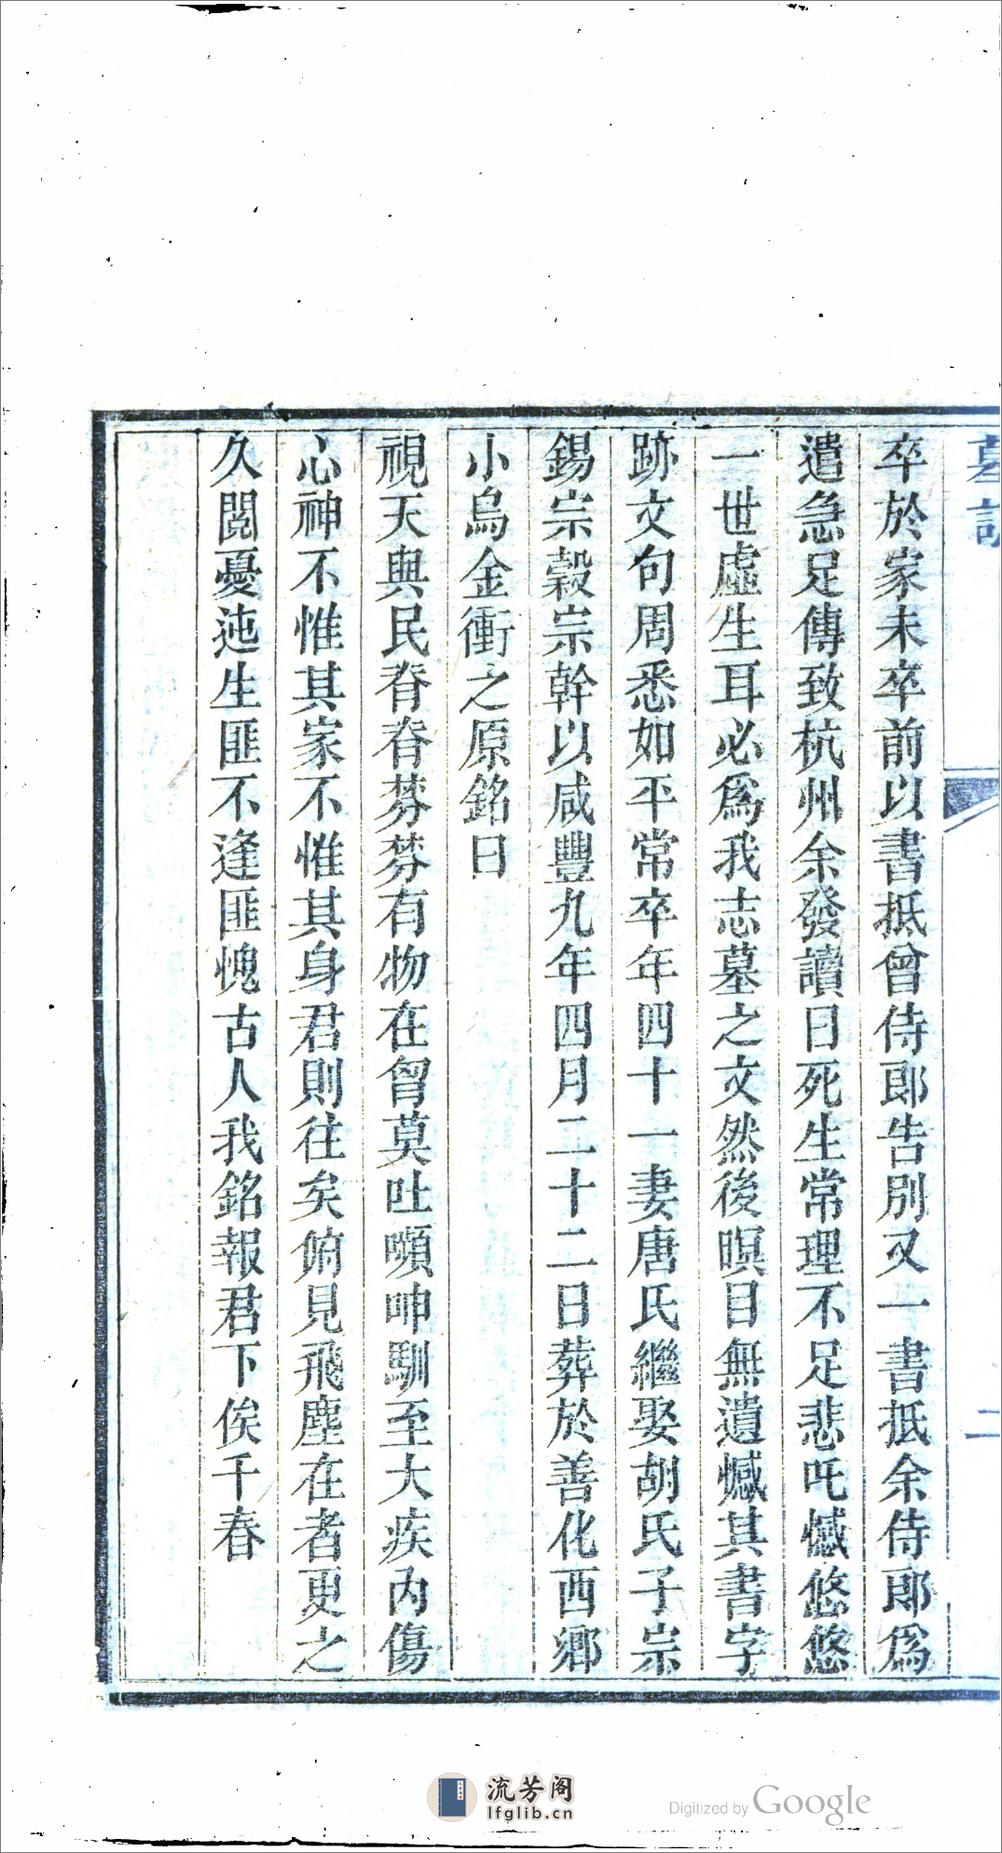 墓誌
二
卒於家未卒前以書抵曾侍郎告別又一書抵余侍郎為
遣急足傳致杭州余發讀曰死生常理不足悲吒憾悠悠
一世虛生耳必為我志墓之文然後瞑目無遺憾其書字
跡文句周悉如平常卒年四十一妻唐氏繼娶胡氏子宗
錫宗穀宗幹以咸豐九年四月二十二日葬於善化西鄉
小烏金衝之原銘曰
視天與民脊脊棼棼有物在胷莫吐嚬呻馴至大疾內傷
心神不惟其家不惟其身君則往矣俯見飛塵在者更之
久閱憂迍生匪不逢匪愧古人我銘報君下俟千春
流芳阁
lfglib.cn
Digitized by Google